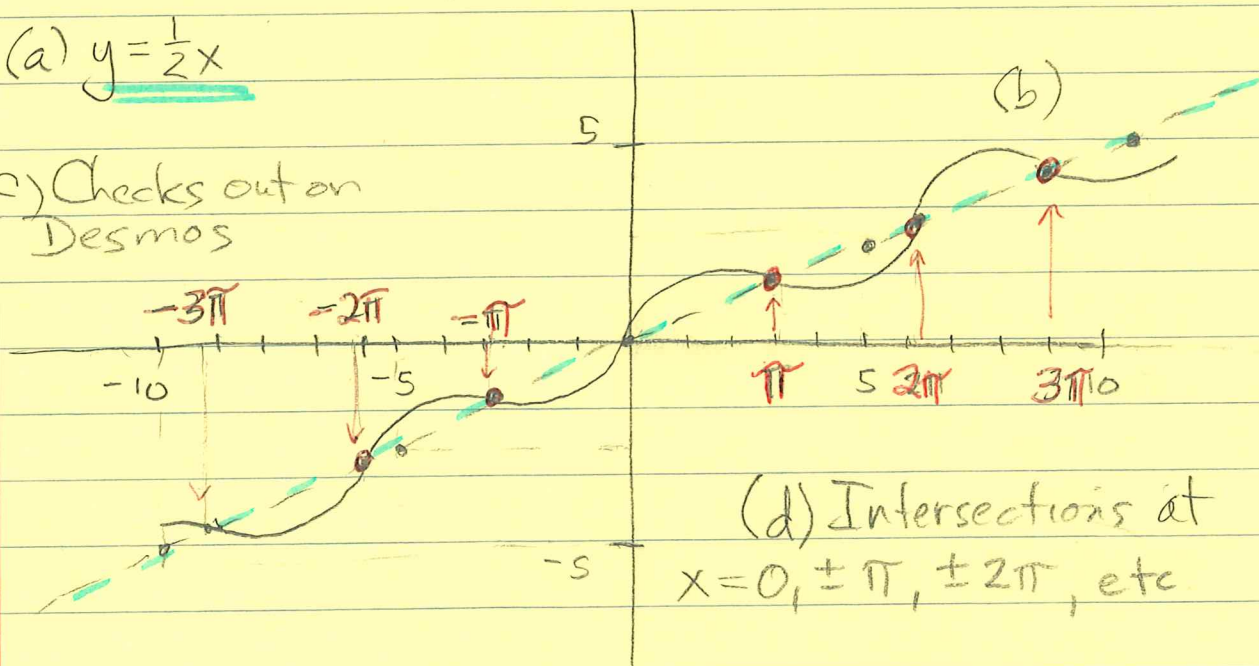 (a) y = ½x
(b)
5
c) Checks out on
Desmos
-3π -2π -π
-10 -5 π 5 2π 3π 10
-5
(d) Intersections at
x = 0, ± π, ± 2π, etc